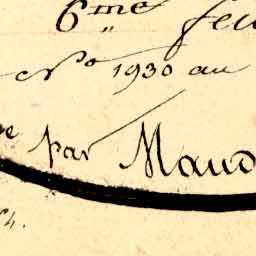 6me feu
No 1930 au
par Maud